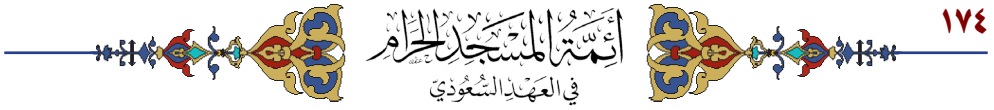 ١٧٤
أَئِمَّةُ المَسْجِدِ الحَرَامِ
فِي العَهْدِ السُّعُودِيّ